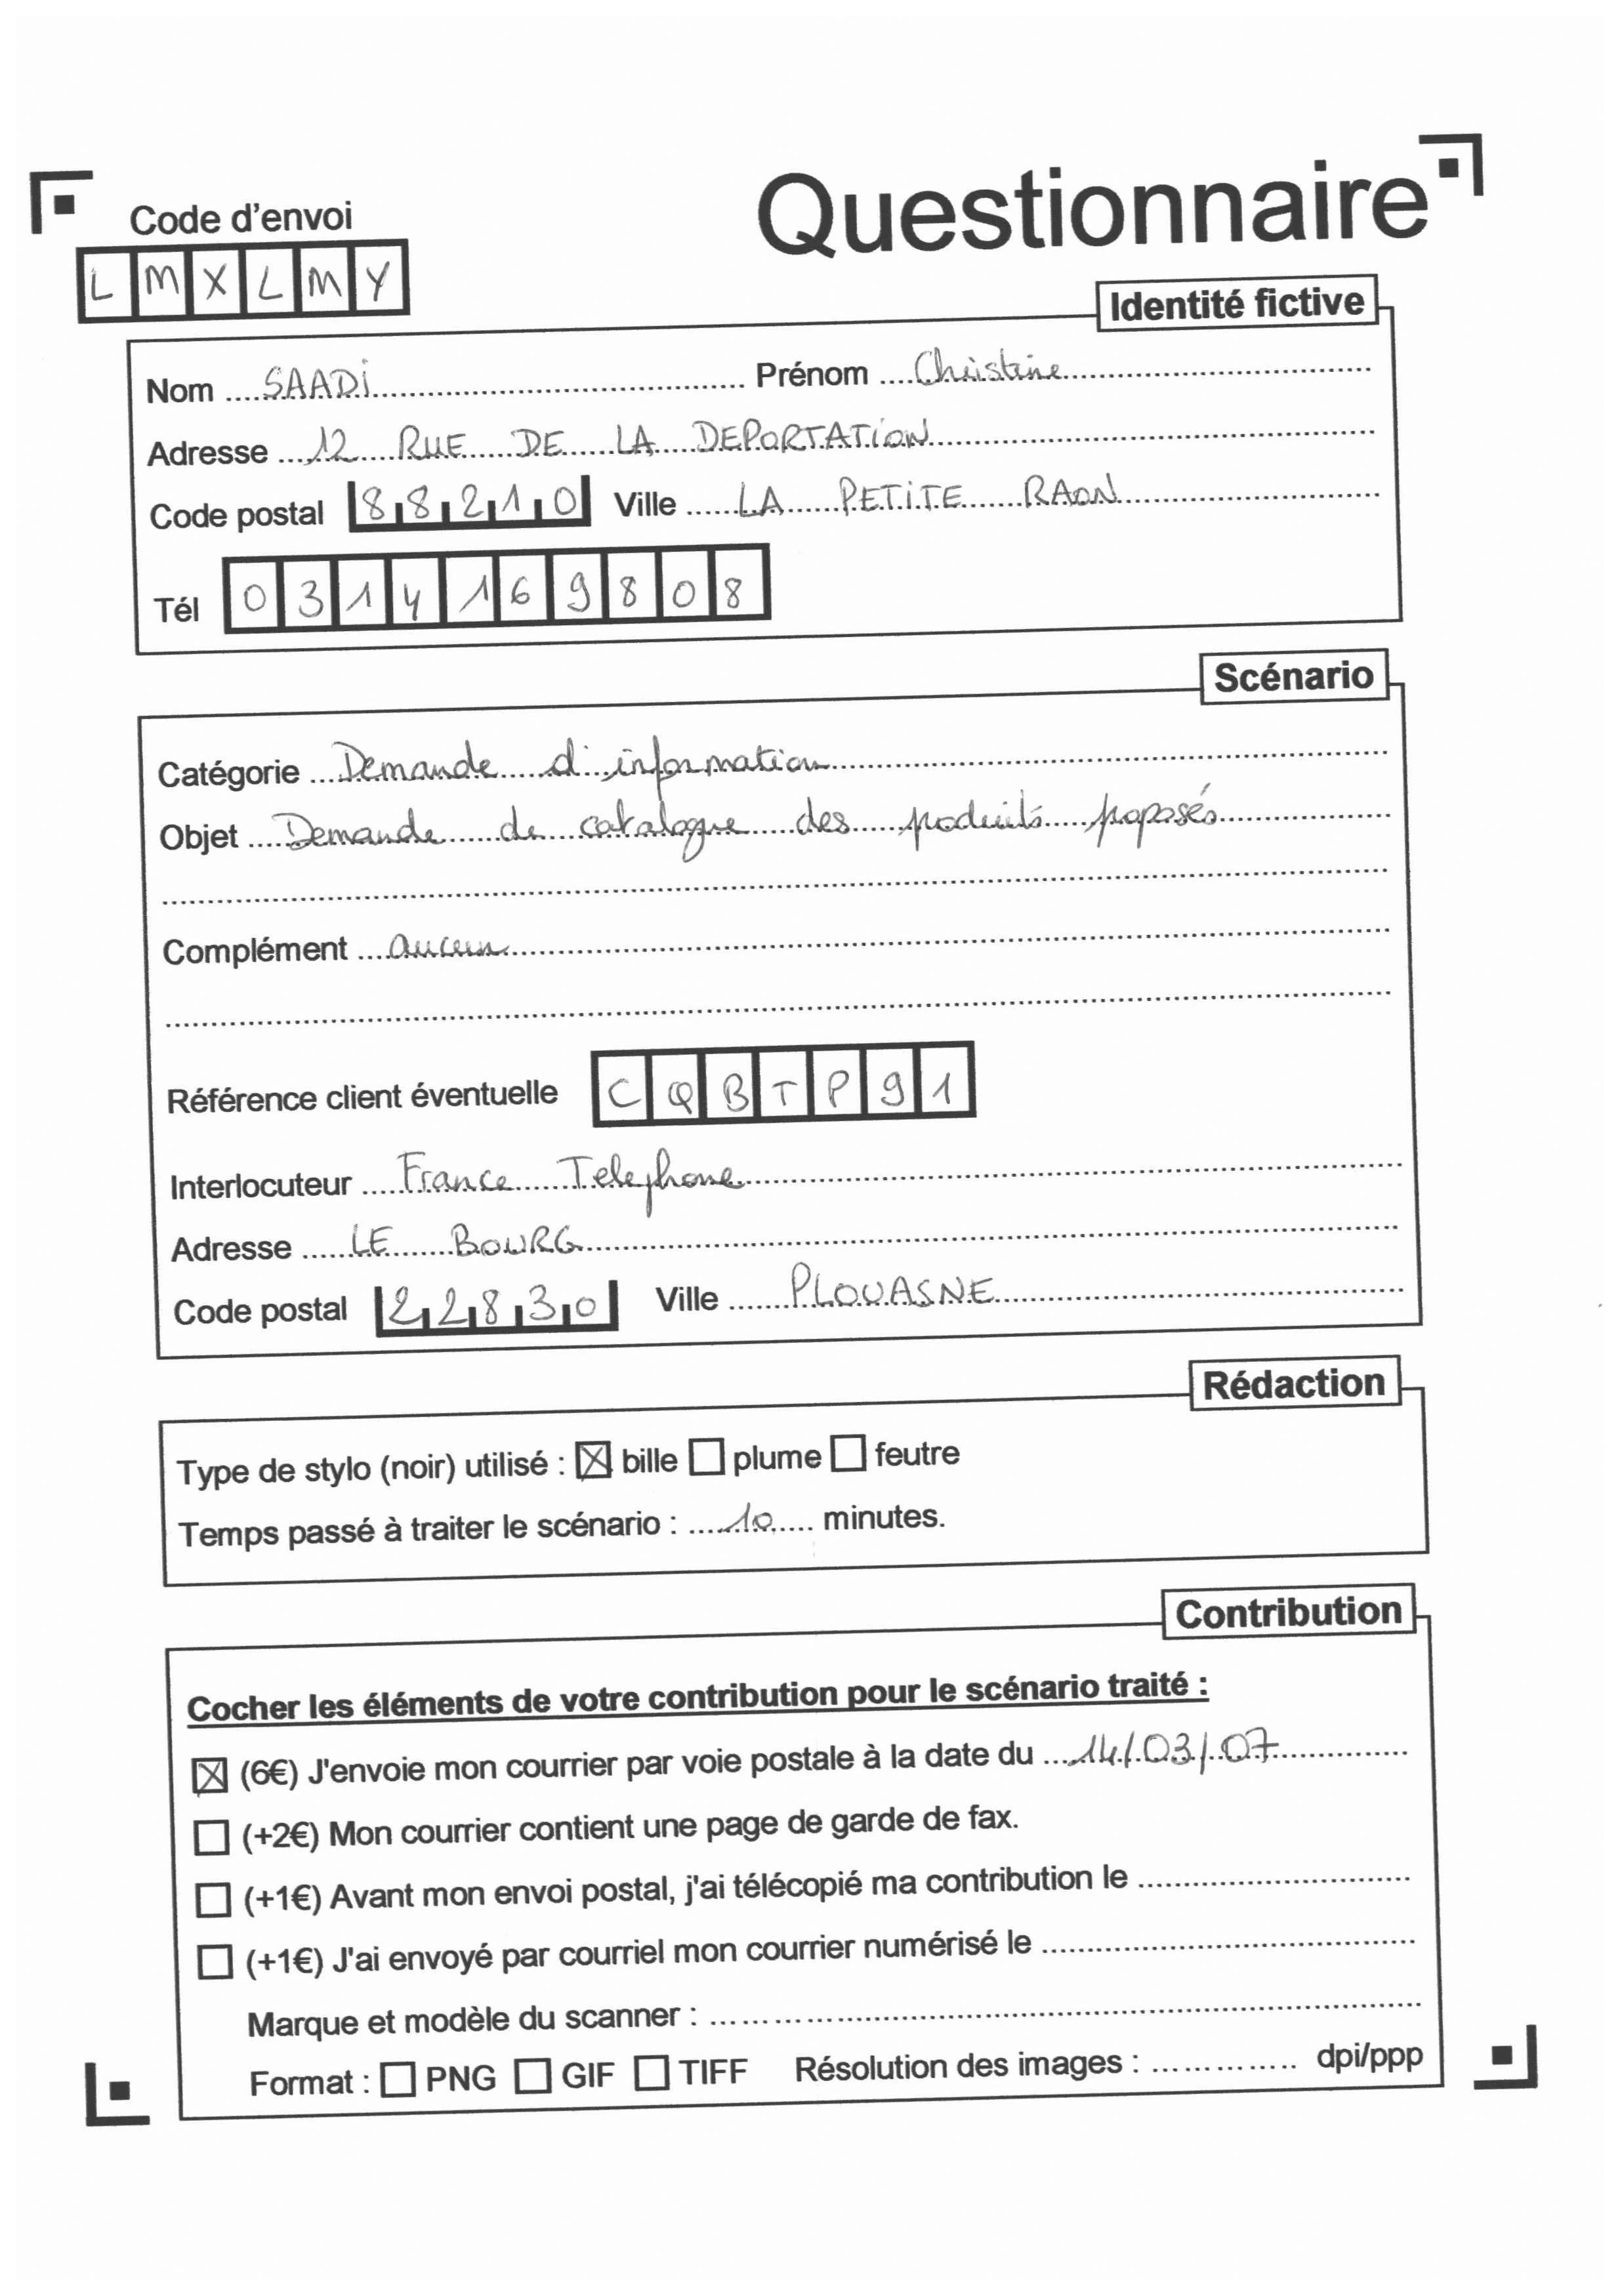 Questionnaire
Code d'envoi
LMXLMY
Identité fictive
Nom SAADI Prénom Christine
Adresse 12 RUE DE LA DEPORTATION
Code postal 88210 Ville LA PETITE RAON
Tél 0314169808
Scénario
Catégorie Demande d'information
Objet Demande de catalogue des produits proposés
Complément aucun
Référence client éventuelle CQBTP91
Interlocuteur France Telephone
Adresse LE BOURG
Code postal 22830 Ville PLOUASNE
Rédaction
Type de stylo (noir) utilisé : ☒ bille ☐ plume ☐ feutre
Temps passé à traiter le scénario : 10 minutes.
Contribution
Cocher les éléments de votre contribution pour le scénario traité :
☒ (6€) J'envoie mon courrier par voie postale à la date du 14/03/07
☐ (+2€) Mon courrier contient une page de garde de fax.
☐ (+1€) Avant mon envoi postal, j'ai télécopié ma contribution le
☐ (+1€) J'ai envoyé par courriel mon courrier numérisé le
Marque et modèle du scanner :
Format : ☐ PNG ☐ GIF ☐ TIFF Résolution des images : dpi/ppp